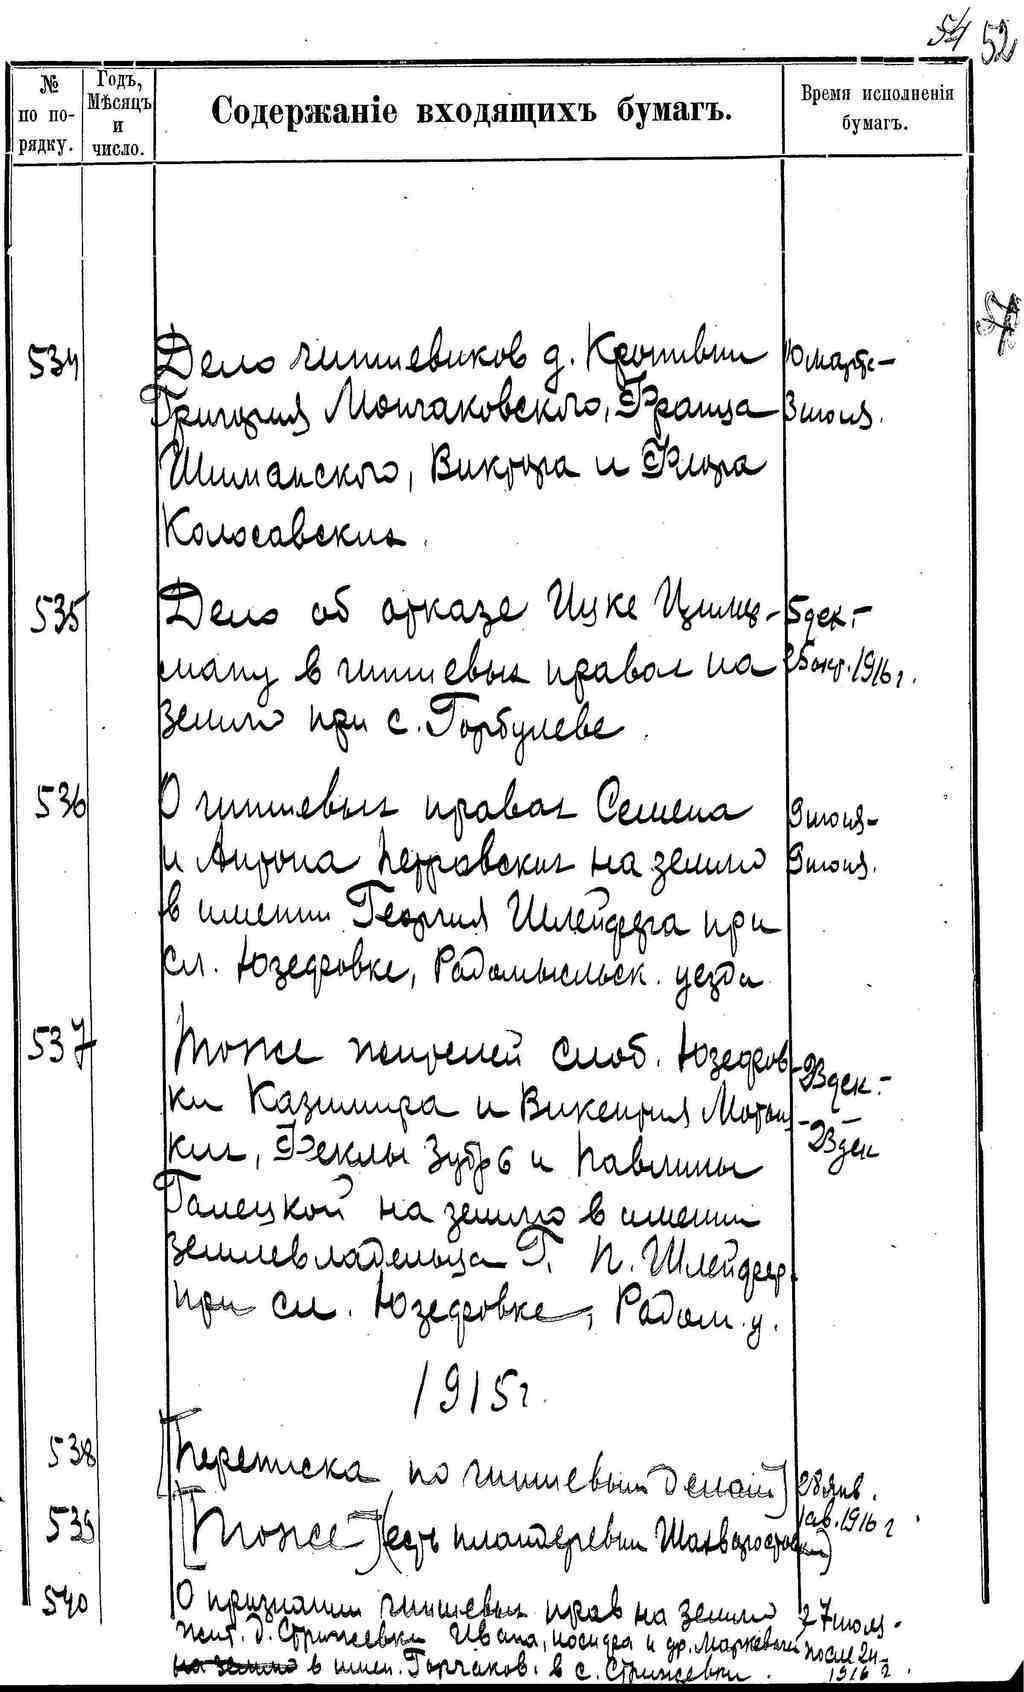 54 52
№ по порядку.
Годъ, Мѣсяцъ и число.
Содержаніе входящихъ бумагъ.
Время исполненія бумагъ.
534 Дело чиншевиков д. Кропивни 10 марта-
Григория Мончаковского, Франца 3 июля.
Шиманского, Виктора и Флора
Колосавских.
535 Дело об отказе Ицке Цимер- 5 дек.-
ману в чиншевых правах на 25 окт. 1916 г.
землю при с. Горбулеве.
536 О чиншевых правах Семена 9 июля-
и Антона Петровских на землю 9 июля.
в имении Георгия Шлейфера при
сл. Юзефовке, Радомысльск. уезда
537 Тоже жителей слоб. Юзефов- 23 дек.-
ки Казимира и Викентия
ких, Феклы Зубр6 и Павлины 23 дек
Галецкой на землю в имении
землевладельца Г. П. Шлейфер
при сл. Юзефовке, Радом. у.
1915 г.
538 [Переписка по чиншевым делам] 28 янв.
539 [Тоже] (есть план деревни) 1 ав. 1916 г
540 О признании чиншевых прав на землю 27 июля-
жит. д. Стрижевки Ивана, и др. Маркевичей после 24
на землю в имен. Горчаков. в с. Стрижевки. 1916 г.